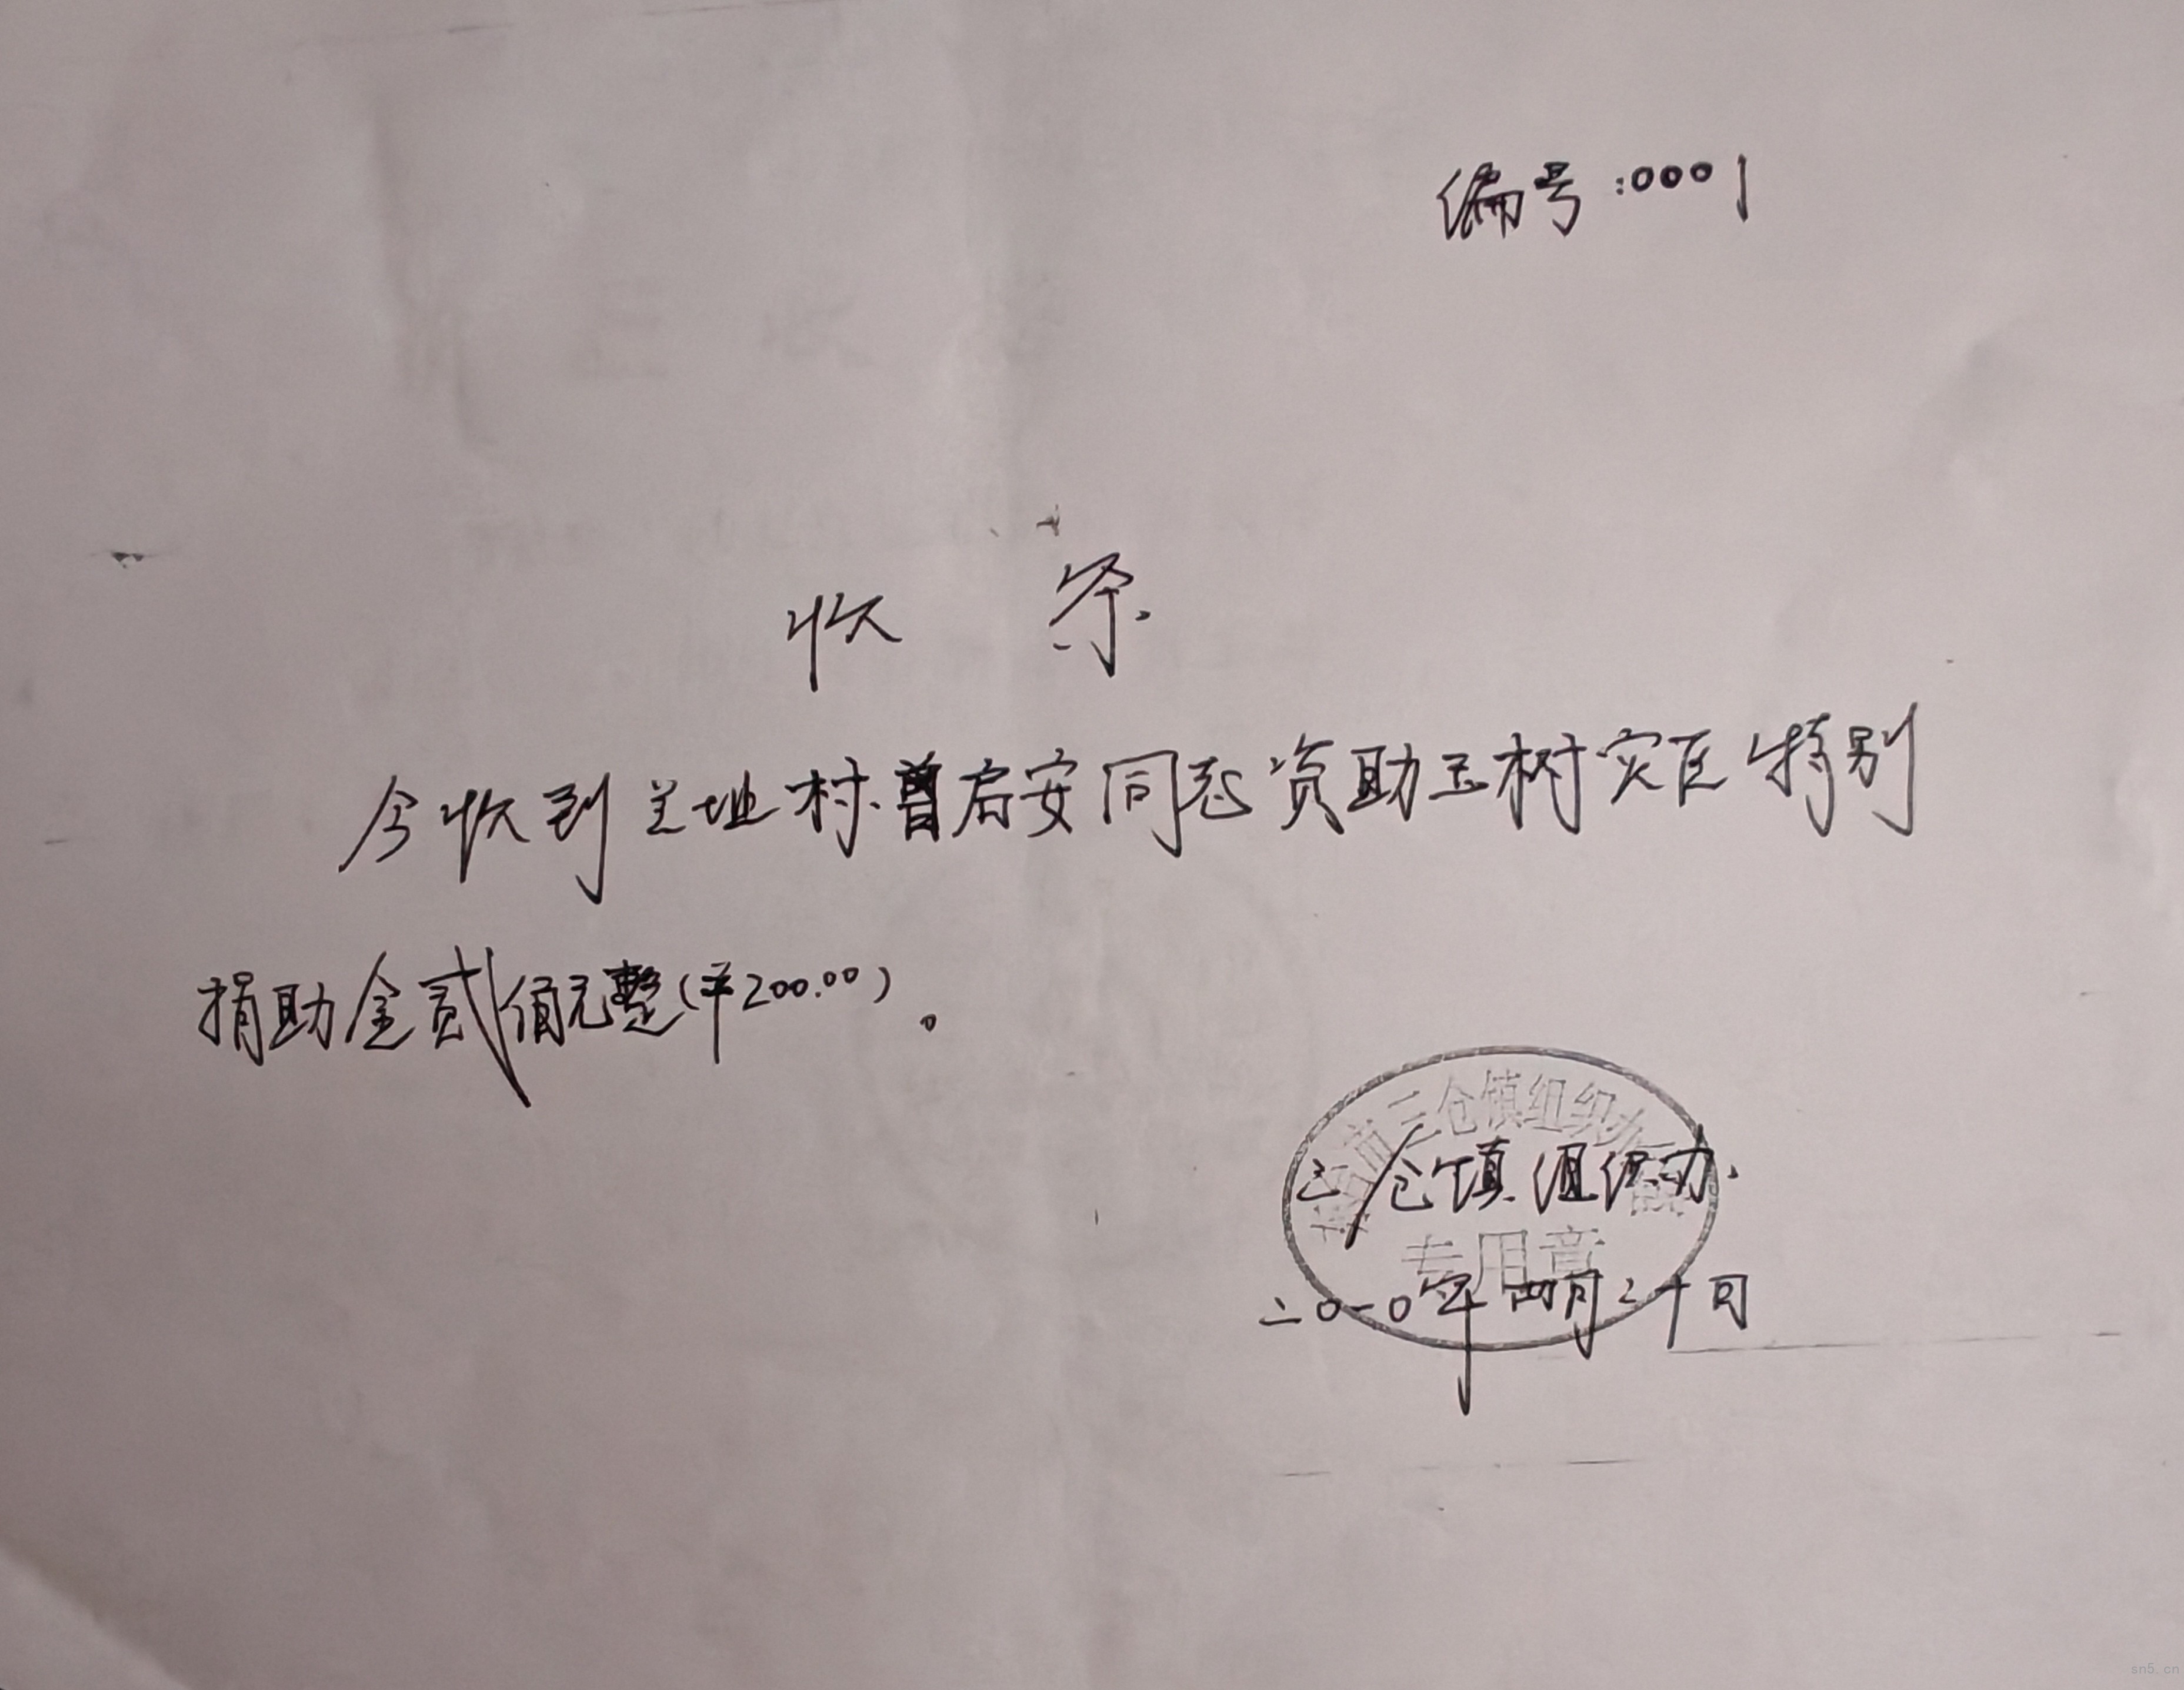 编号:0001
收 条
今收到兰址村曾启安同志资助玉树灾区特别
捐助金贰佰元整(￥200.00)。
市三仓镇组织办
三仓镇组织办
专用章
二〇一〇年四月二十日
sn5.cn